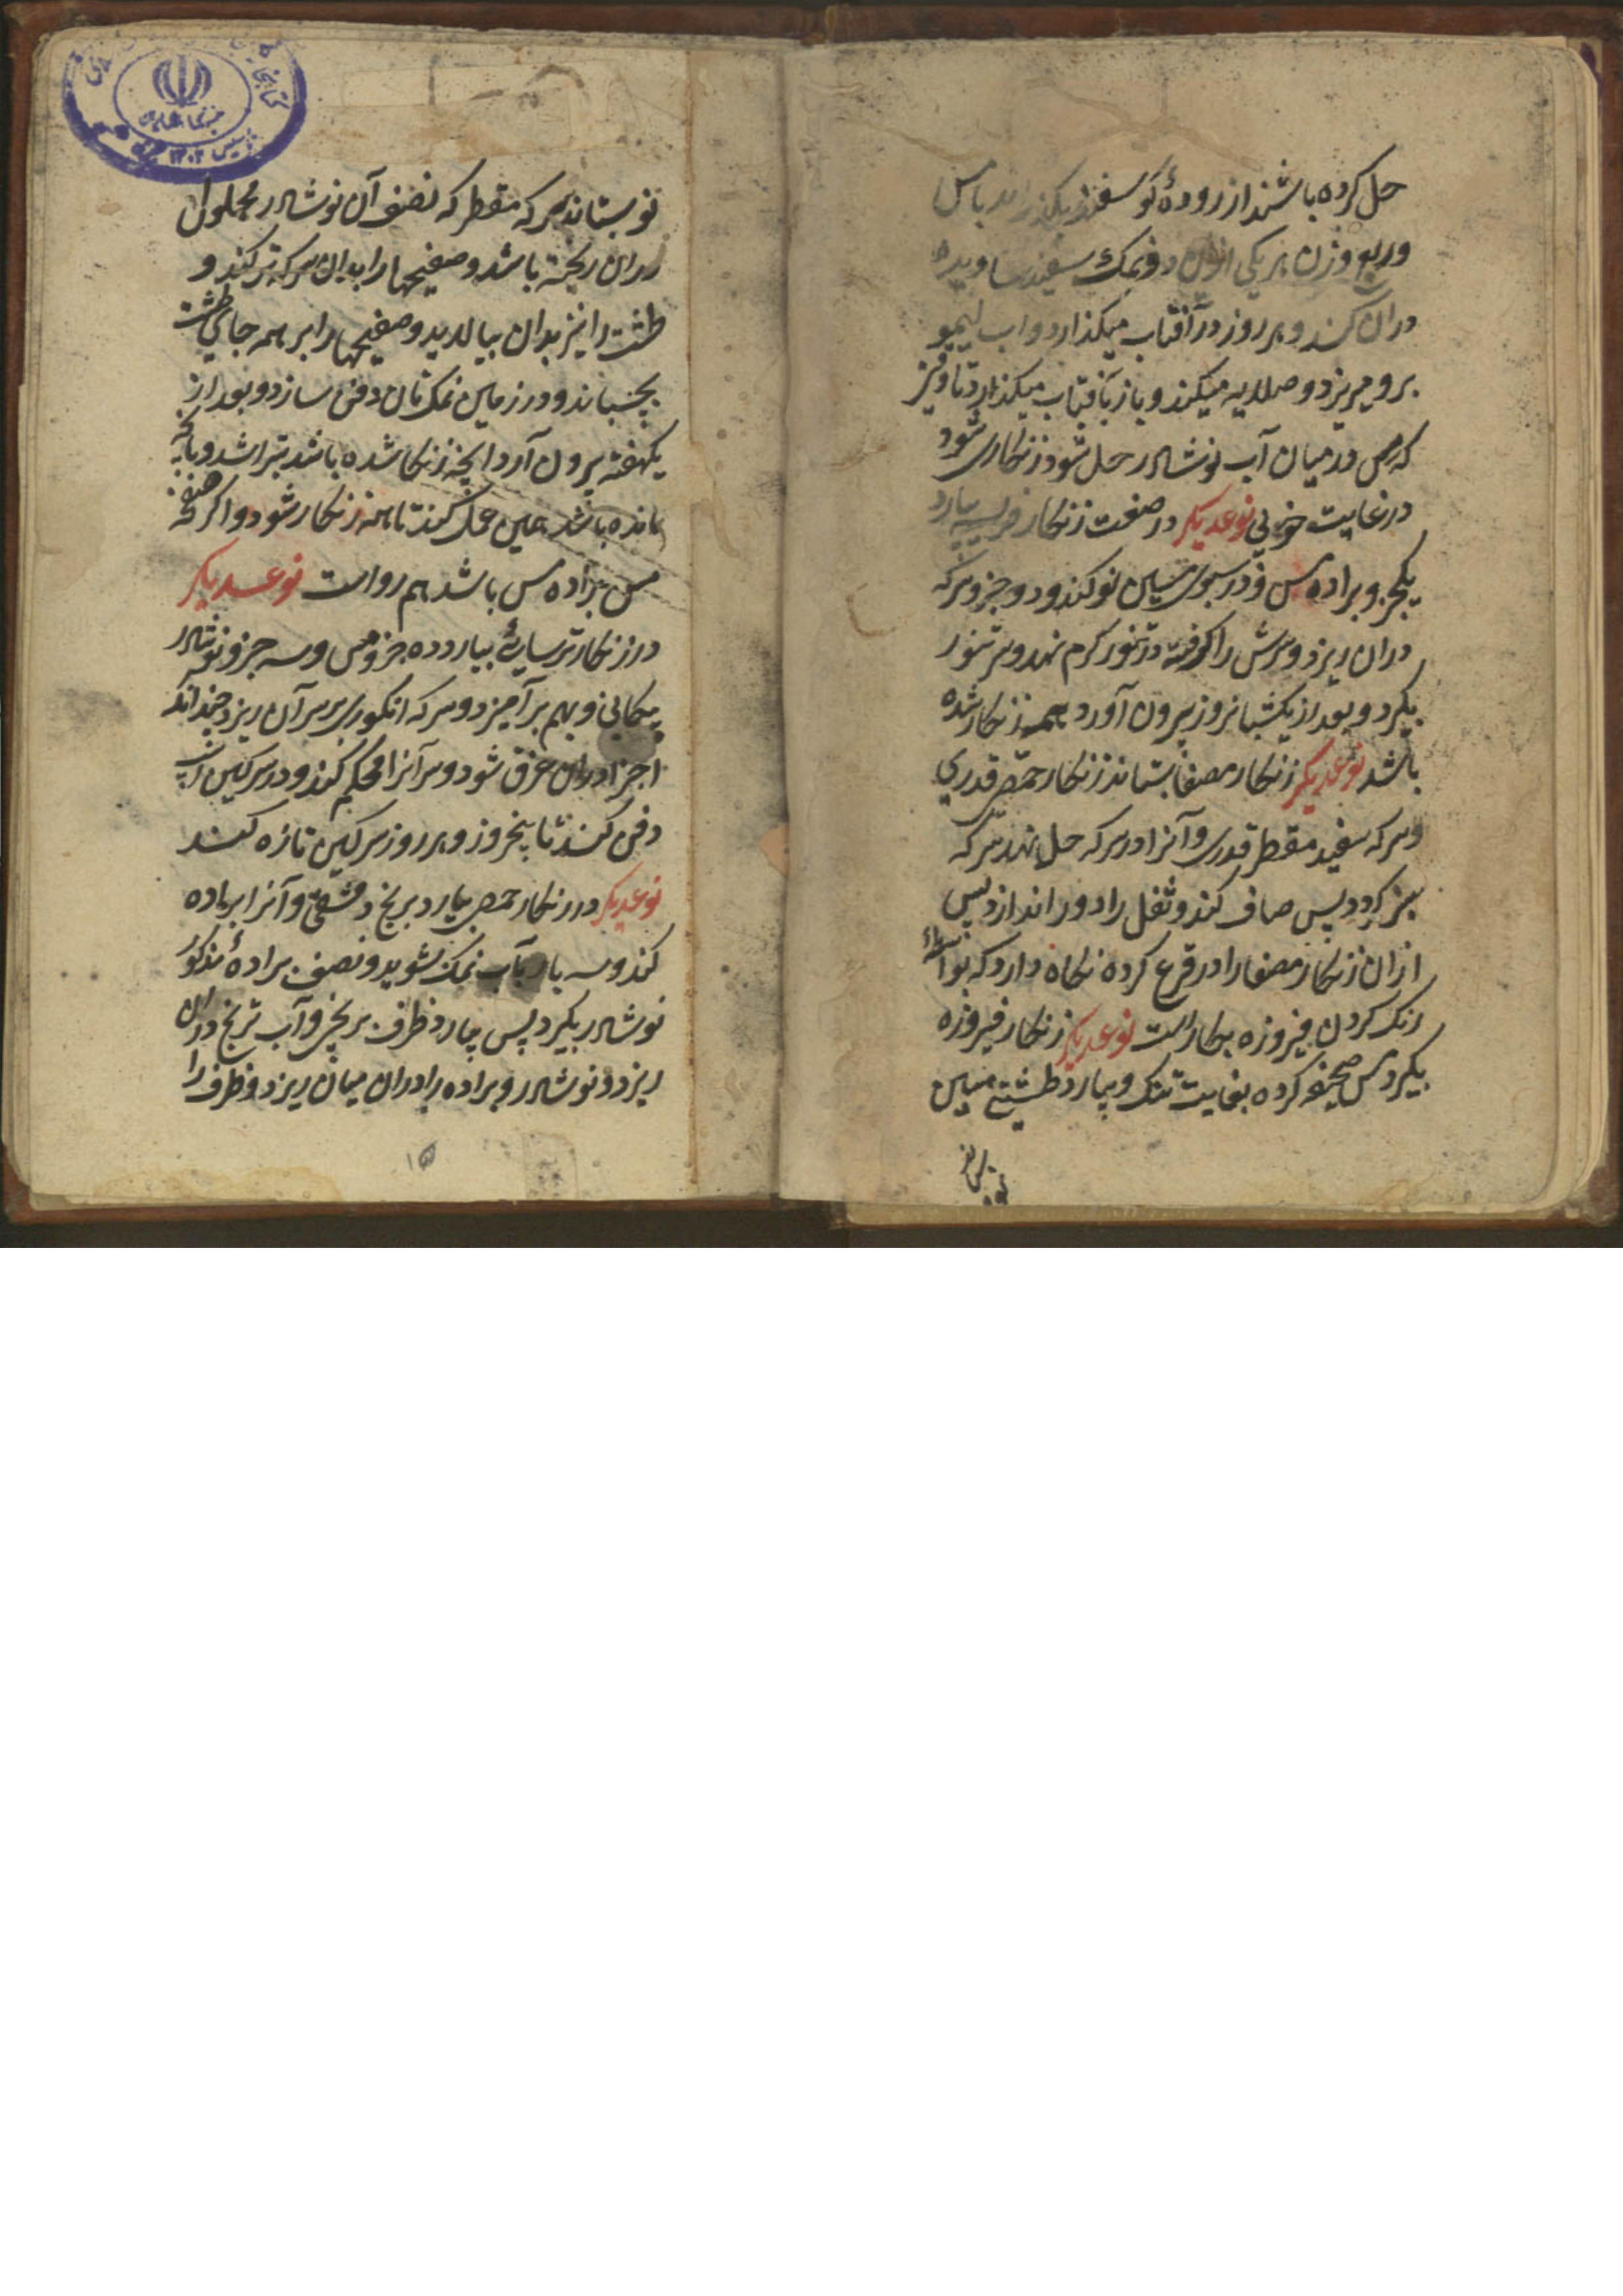 حل کرده باشند از رودهٔ گوسفند بگذراند با مس
وربع وزن هر یکی ازین دو نمک سفید ساویده
دران کند و هر روز در آفتاب میگذارد و آب لیمو
برو میریزد و صلایه میکند و باز بآفتاب میگذارد تا وقتی
که مس در میان آب نوشادر حل شود زنکاری شود
در غایت خوبی نوعدیکر در صنعت زنکار فریسه بیارد
یکجزو براده مس و در سبوی مسین نو کند و دو جزو سرکه
دران ریزد و سرش را گرفته در تنور کرم نهد و سر تنور
بگیرد و بعد از یکشبانروز بیرون آورد همه زنکار شده
باشد نوعدیکر زنکار مصفا بستاند زنکار حمصی قدری
وسرکه سفید مقطر قدری و آنرا در سرکه حل نهد سرکه
سبز کردد پس صاف کند و ثفل را دور اندازد پس
ازان زنکار مصفا را در قرع کرده نکاه دارد که بواسطهٔ
رنک کردن فیروزه بکار است نوعدیکر زنکار فیروزه
بگیرد مس صحیفه کرده بغایت تنک و بیارد طشتی مسین
نو بستاند سرکه مقطر که نصف آن نوشادر محلول
دران ریخته باشد و صفیحها را بدان سرکه تر کند و
طشت را نیز بدان بیالاید و صفیحها را بر همه جای طشت
بچسباند و در زمین نمک ناک دفن سازد و بعد از
یکهفته بیرون آرد آنچه زنکار شده باشد بتراشد و باقیه
مانده باشد همین عمل کند تا همه زنکار شود و اگر صفحه
مس براده مس باشد هم رواست نوعدیکر
در زنکار ترسایی بیارد ده جزو مس و سه جزو نوشادر
پیکانی و بهم بر آمیزد و سرکه انکوری بر سر آن ریزد چندانکه
اجزا دران غرق شود و سر آنرا محکم کند و در سرکین اسب
دفن کند تا پنج روز و هر روز سرکین تازه کند
نوعدیکر در زنکار حمصی بیارد برنج دمشقی و آنرا براده
کند و سه بار بآب نمک بشوید و نصف برادهٔ مذکور
نوشادر بگیرد پس بیارد ظرف برنجی و آب ترنج دران
ریزد و نوشادر و براده را دران میان ریزد و ظرف را
۱۵